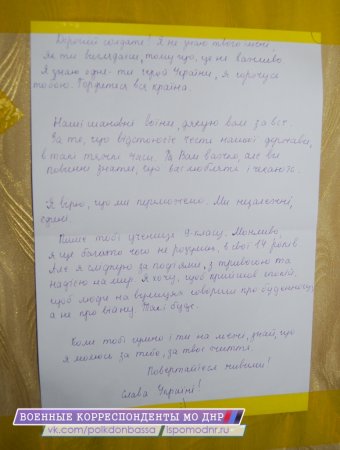 Дорогий солдате! Я не знаю твого імені,
як ти виглядаєш, тому що, це не важливо
Я знаю одне - ти герой України, я горжуся
тобою. Гордиться вся країна.
Наші шановні воїни, дякую вам за все.
За те, що відстоюєте честь нашої держави,
в такі тяжкі часи. Вам важко, але ви
повинні знати, що вас люблять і чекають.
Я вірю, що ми переможемо. Ми незалежні,
єдині.
Пише тобі учениця 9-класу. Можливо,
я ще багато чого не розумію, в свої 14 років
Але я слідкую за подіями, з тривогою та
надією на мир. Я хочу, щоб прийшов спокій,
щоб люди на вулицях говорили про буденщину,
а не про війну. Так і буде.
Коли тобі сумно і ти на межі, знай, що
я молюсь за тебе, за твоє життя.
Повертайтеся живими!
Слава Україні!
ВОЕННЫЕ КОРРЕСПОНДЕНТЫ МО ДНР
vk.com/polkdonbassa / ispomodnr.ru